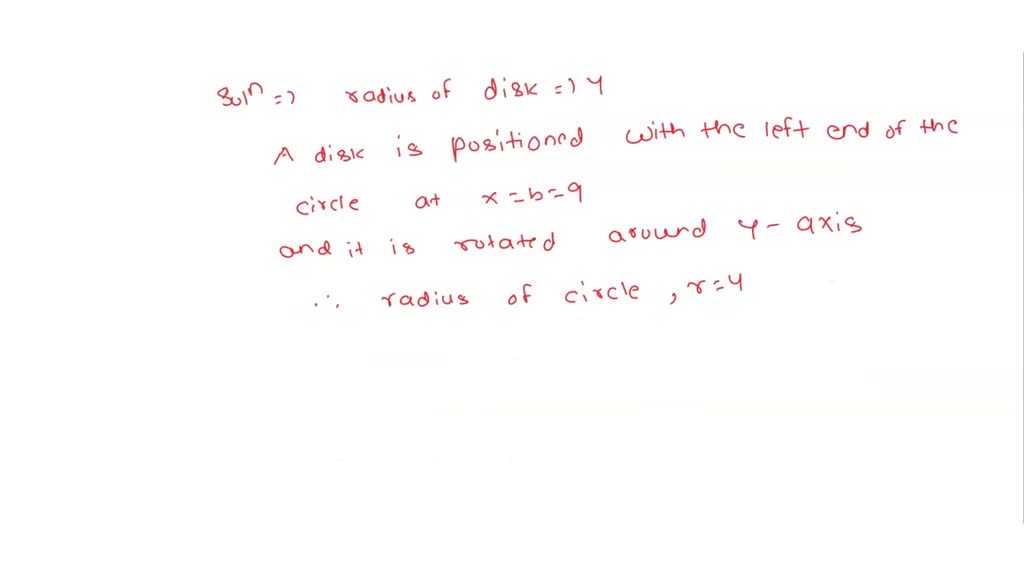 Solⁿ => radius of disk => 4
A disk is positioned with the left end of the
circle at x=b=9
and it is rotated around y-axis
∴ radius of circle, r=4